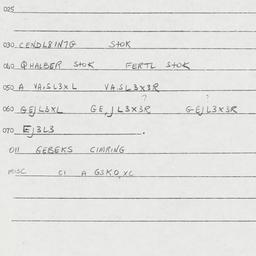 025
030 CENDL8IN7G STOK
040 QHALBEP STOK FERTL STOK
050 A VA.SL3XL VA.SL3X3R
? ?
060 GEJL3XL GE,JL3X3R GEJL3X3R
070 EJ3L3
011 GEBEKS CIMRING
MISC CI A GSKO,XC